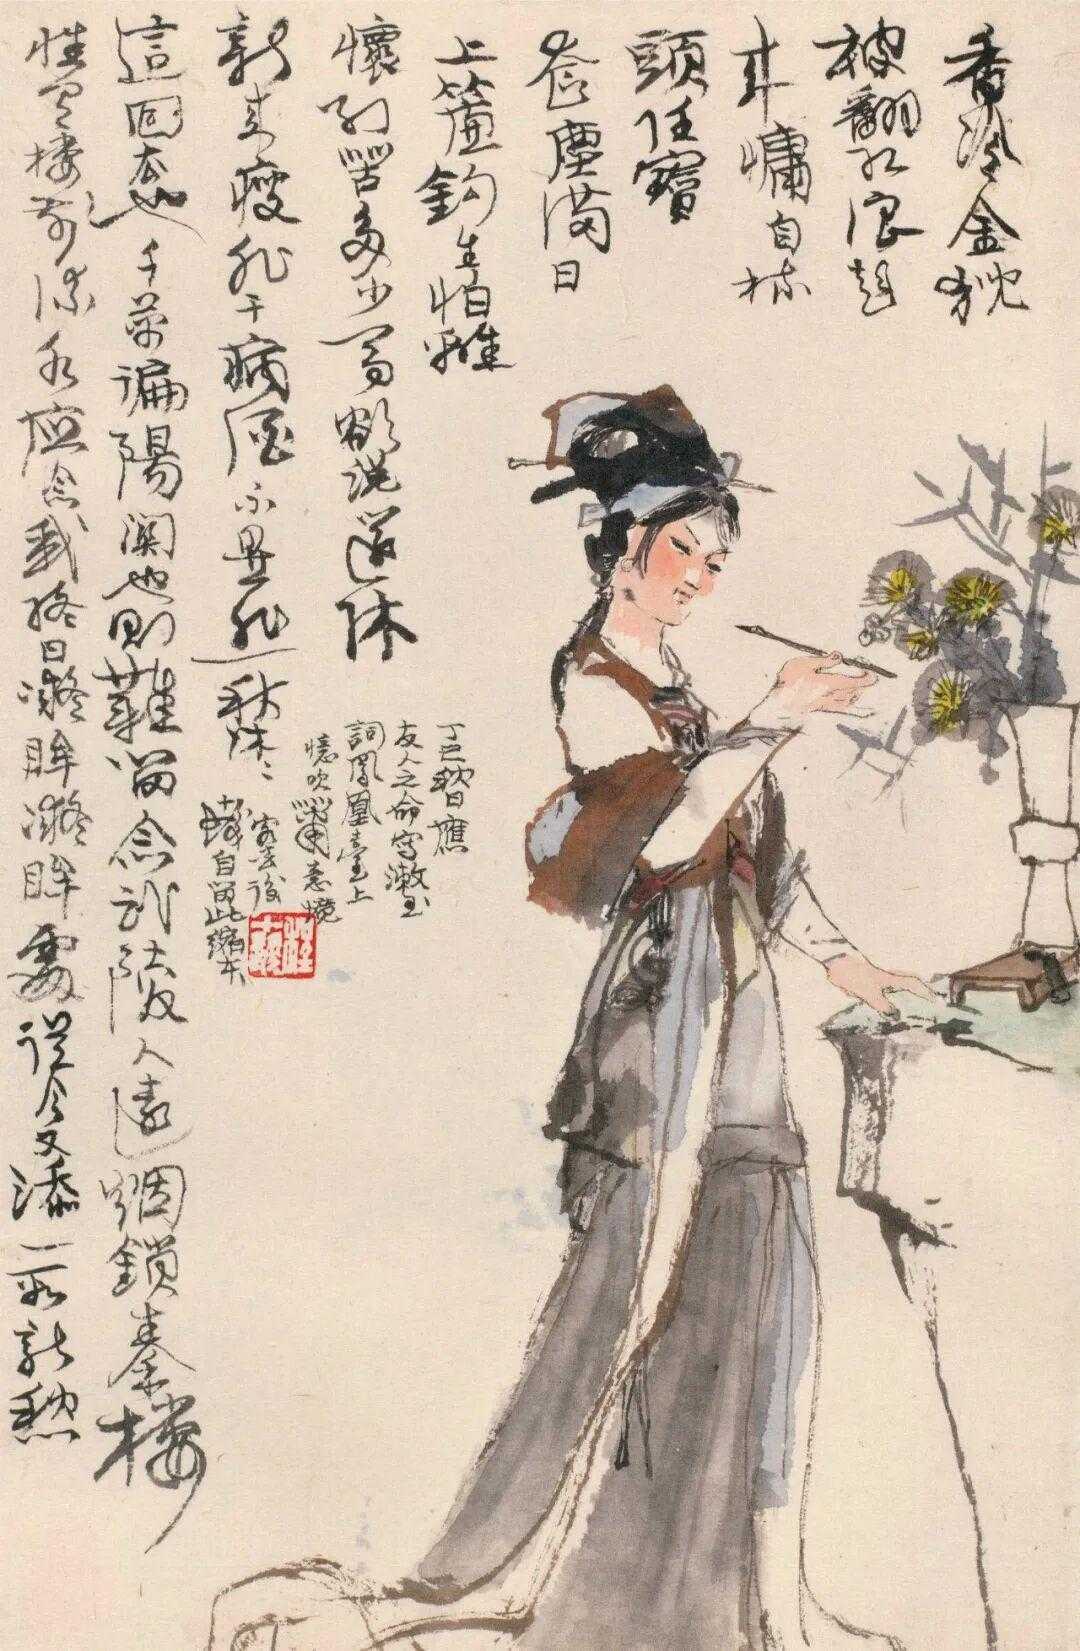 香冷金猊
被翻红浪起
来慵自梳
頭任寶
奁塵满日
上簾鈎生怕離
懷别苦多少事欲説還休
新来瘦非干病酒不是悲秋休〻
這回去也千萬遍陽関也則難留念武陵人遠烟鎖秦樓
惟有樓前流水應念我終日凝眸凝眸處從今又添一段新愁
丁巳秋日應
友人之命寫漱玉
詞鳳凰臺上
憶吹簫意境
寄去後
自留此